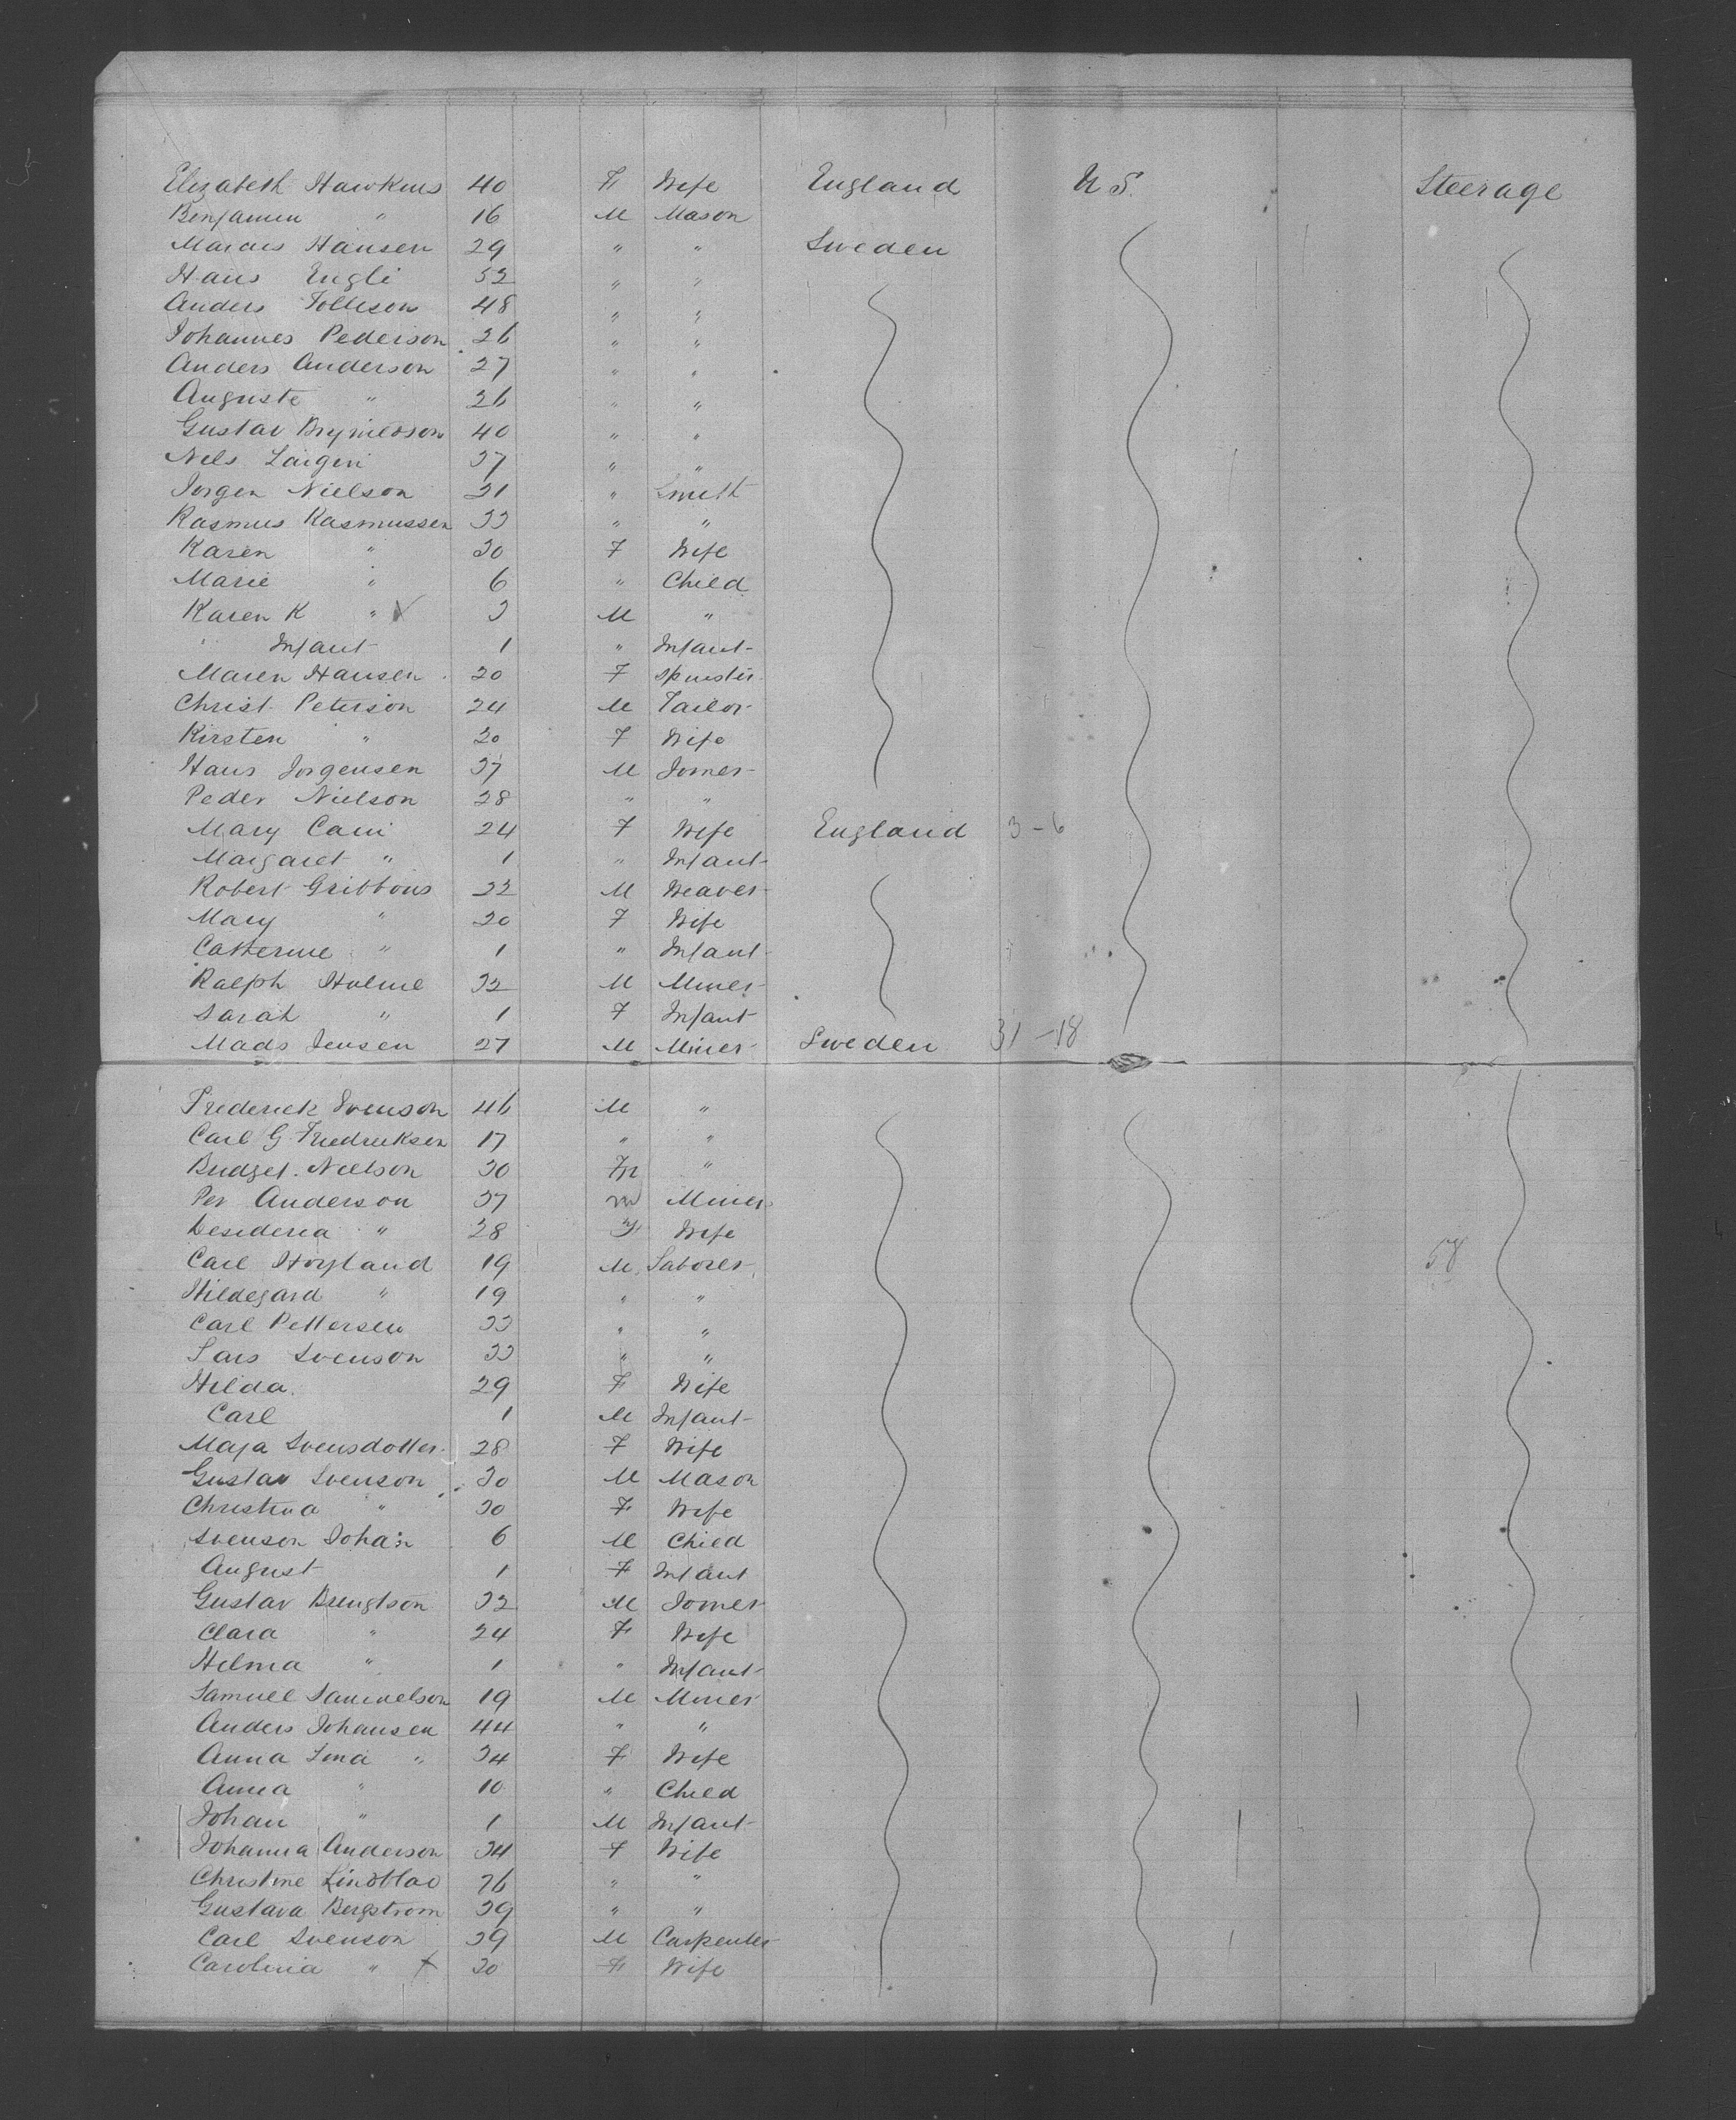 Elizabeth Hawkins 40 F Wife England U S. Steerage
Benjamin " 16 M Mason
Hansen 29 " " Sweden
Hans Engli 52 " "
Anders Tolleson 48 " "
Johannes Pederson 26 " "
Anders Anderson 27 " "
Auguste " 26 " "
Gustav 40 " "
Nels 37 " "
Jorgen Nielson 31 " Smith
Rasmus Rasmussen 33 " "
Karen " 30 F Wife
Marie " 6 " Child
Karen K " 3 M "
" Infant 1 " Infant
Maren Hansen 20 F Spinster
Christ. Peterson 24 M Tailor
Kirsten " 20 F Wife
Hans Jorgensen 37 M Joiner
Peder Nielson 28 " "
Mary 24 F Wife England 3-6
Margaret " 1 " Infant
Robert Gribbons 22 M Weaver
Mary " 20 F Wife
Catherine " 1 " Infant
Ralph Hulme 32 M Miner
Sarah " 1 F Infant
Mads Jensen 27 M Miner Sweden 31-18
Frederick Svenson 46 M "
Carl G Fredricksen 17 " "
Bridget Neilson 30 "
Per Anderson 37 M Miner
Desideria " 28 F Wife
Carl Hoyland 19 M Laborer 58
Hildegard " 19 " "
Carl Pettersen 33 " "
Lars Svenson 33 " "
Hilda 29 F Wife
Carl 1 M Infant
Maja Svensdotter 28 F Wife
Gustav Svenson 30 M Mason
Christina " 30 F Wife
Svenson Johan 6 M Child
August 1 F Infant
Gustav Bengtson 32 M Joiner
Clara " 24 F Wife
Helma " 1 " Infant
Samuel Samuelson 19 M Miner
Anders Johansen 44 " "
Anna Lina " 34 F Wife
Anna " 10 " Child
Johan " 1 M Infant
Johanna Anderson 34 F Wife
Christine Lindblad 76 " "
Gustava Bergstrom 39 " "
Carl Svenson 39 M Carpenter
Carolina " X 30 F Wife